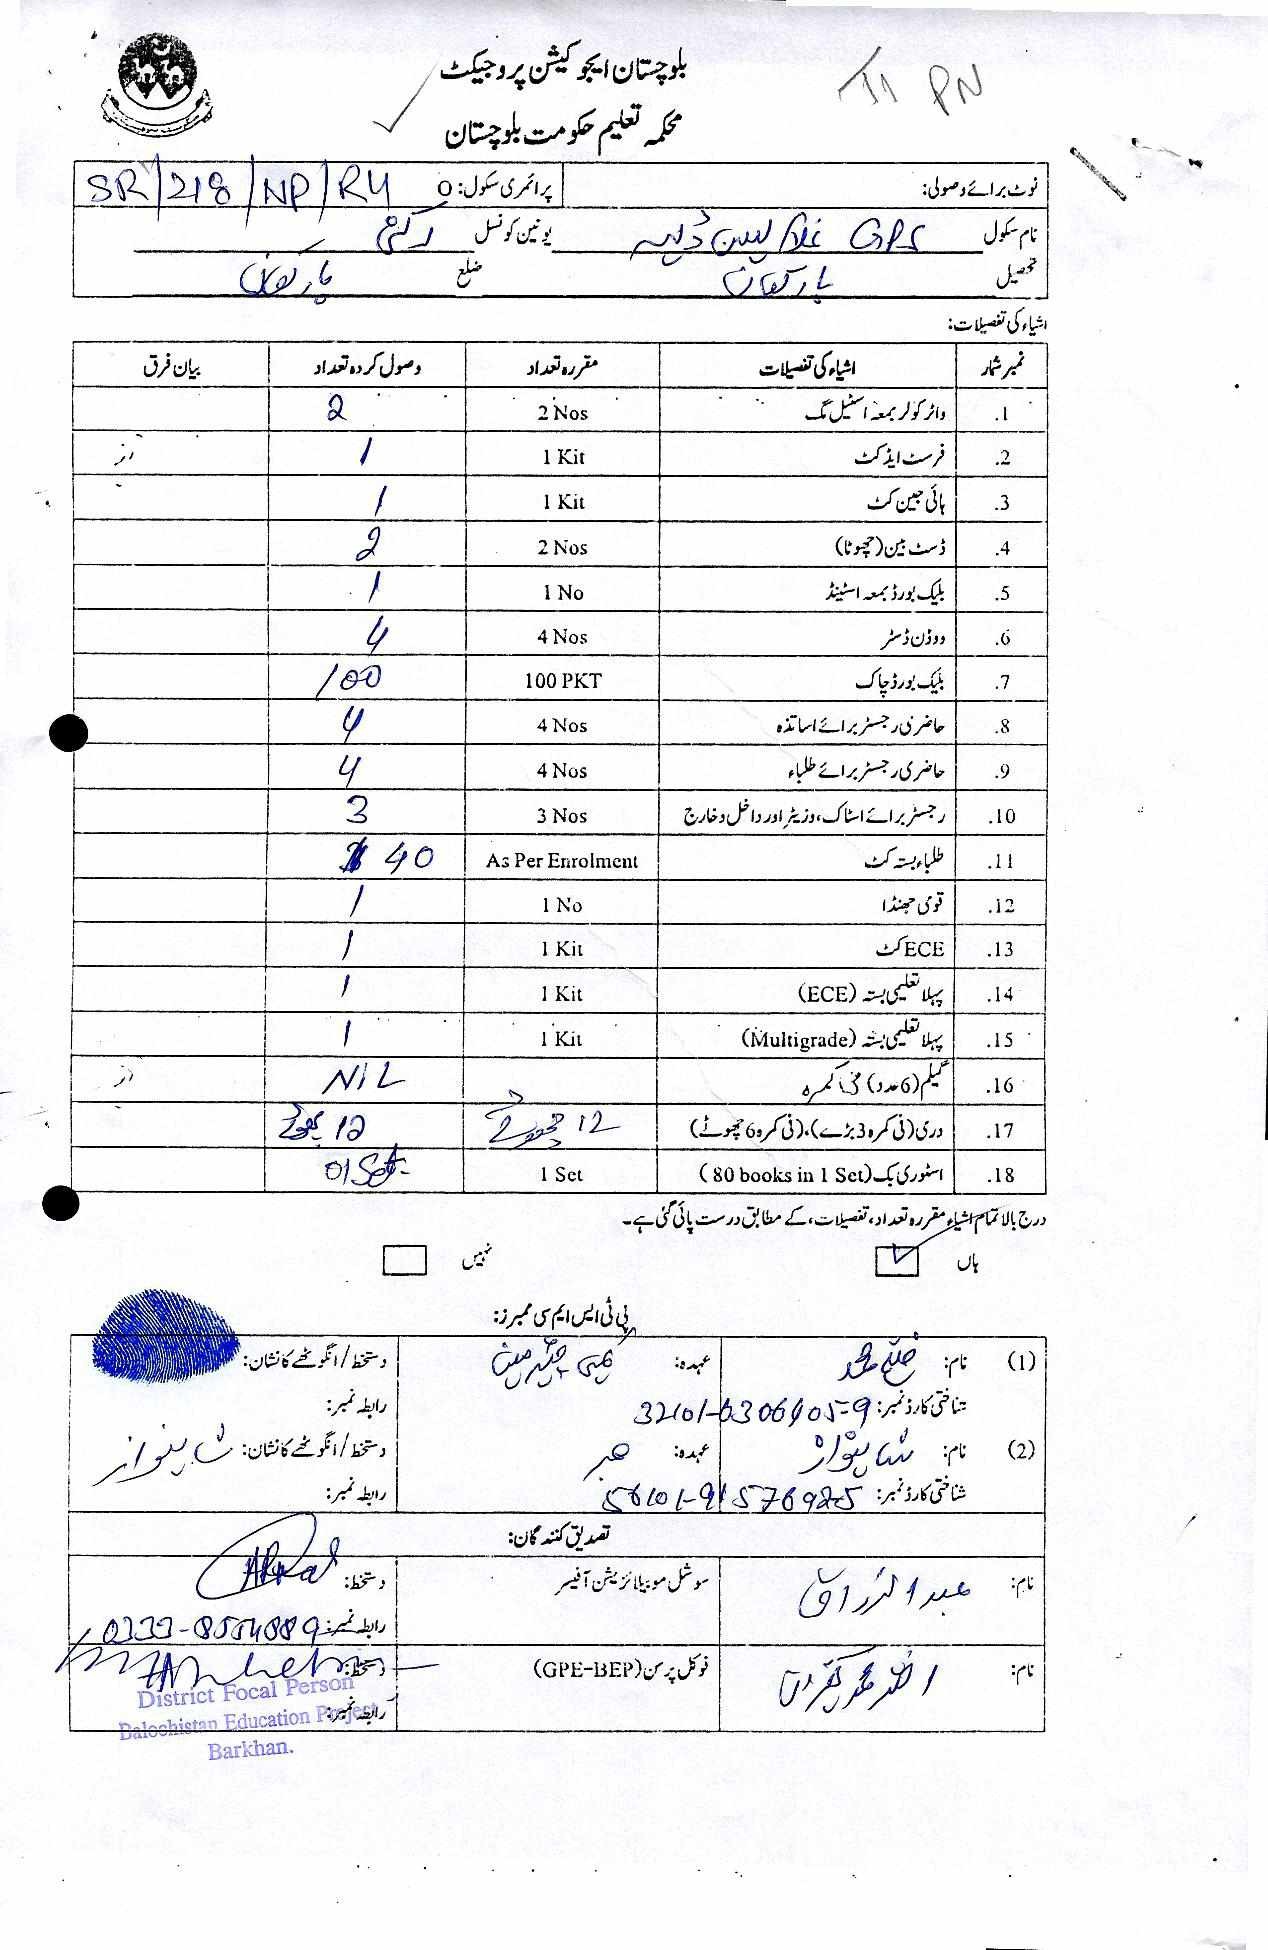 بلوچستان ایجوکیشن پروجیکٹ
محکمہ تعلیم حکومت بلوچستان
PN
نوٹ برائے وصولی: پرائمری سکول: 0 SR/218/NP/R4
نام سکول GPS یونین کونسل رکنی
تحصیل بارکھان ضلع بارکھان
اشیاء کی تفصیلات:
نمبر شمار اشیاء کی تفصیلات مقررہ تعداد وصول کردہ تعداد بیان فرق
1. واٹر کولر بمعہ اسٹیل مگ 2 Nos 2
2. فرسٹ ایڈ کٹ 1 Kit 1
3. ہائی جین کٹ 1 Kit 1
4. ڈسٹ بین (چھوٹا) 2 Nos 2
5. بلیک بورڈ بمعہ اسٹینڈ 1 No 1
6. ووڈن ڈسٹر 4 Nos 4
7. بلیک بورڈ چاک 100 PKT 100
8. حاضری رجسٹر برائے اساتذہ 4 Nos 4
9. حاضری رجسٹر برائے طلباء 4 Nos 4
10. رجسٹر برائے اسٹاک، وزیٹر اور داخل و خارج 3 Nos 3
11. طلباء بستہ کٹ As Per Enrolment 40
12. قومی جھنڈا 1 No 1
13. ECE کٹ 1 Kit 1
14. پہلا تعلیمی بستہ (ECE) 1 Kit 1
15. پہلا تعلیمی بستہ (Multigrade) 1 Kit 1
16. گلیم (6 عدد) فی کمرہ NIL
17. دری (فی کمرہ 3 بڑے)، (فی کمرہ 6 چھوٹے) 12 چھوٹے 12 چھوٹے
18. اسٹوری بک (80 books in 1 Set) 1 Set 01 Set
درج بالا تمام اشیاء مقررہ تعداد، تفصیلات، کے مطابق درست پائی گئی ہے۔
ہاں نہیں
پی ٹی ایس ایم سی ممبرز:
(1) نام: فتح محمد عہدہ: چیئرمین دستخط / انگوٹھے کا نشان:
شناختی کارڈ نمبر: 32101-6306405-9 رابطہ نمبر:
(2) نام: شاہنواز عہدہ: ممبر دستخط / انگوٹھے کا نشان: شاہنواز
شناختی کارڈ نمبر: 56101-9157692-5 رابطہ نمبر:
تصدیق کنندگان:
نام: عبدالرزاق سوشل موبیلائزیشن آفیسر دستخط:
رابطہ نمبر: 0333-8554889
نام: فوکل پرسن (GPE-BEP) دستخط:
رابطہ نمبر:
District Focal Person
Balochistan Education Project
Barkhan.